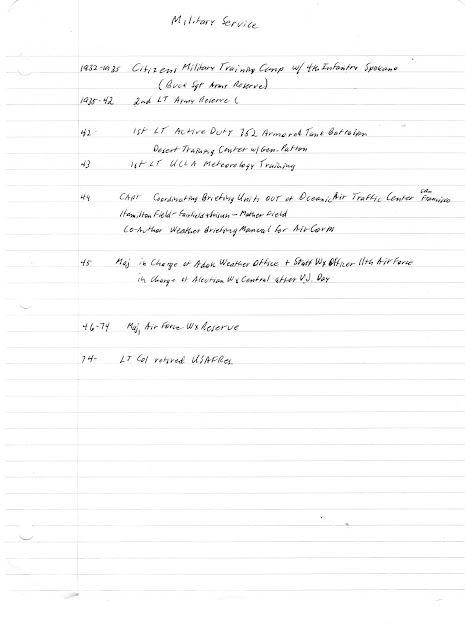 Military Service
1932-1935 Citizens Military Training Camp w/ 4th Infantry Spokane
(Buck Sgt Army Reserve)
1935-42 2nd LT Army Reserve (
42 1st LT Active Duty 752 Armored Tank Battalion
Desert Training Center w/ Gen. Patton
43 1st LT UCLA Meteorology Training
44 CAPT Coordinating Briefing Units out of Oceanic Air Traffic Center San Francisco
Hamilton Field - Fairfield - Mather Field
Co-Author Weather Briefing Manual for Air Corps
45 Maj in Charge of Adak Weather Office + Staff Wx Officer 11th Air Force
in Charge of Aleutian Wx Central after V.J. Day
46-74 Maj, Air Force Wx Reserve
74- LT Col retired USAFRes